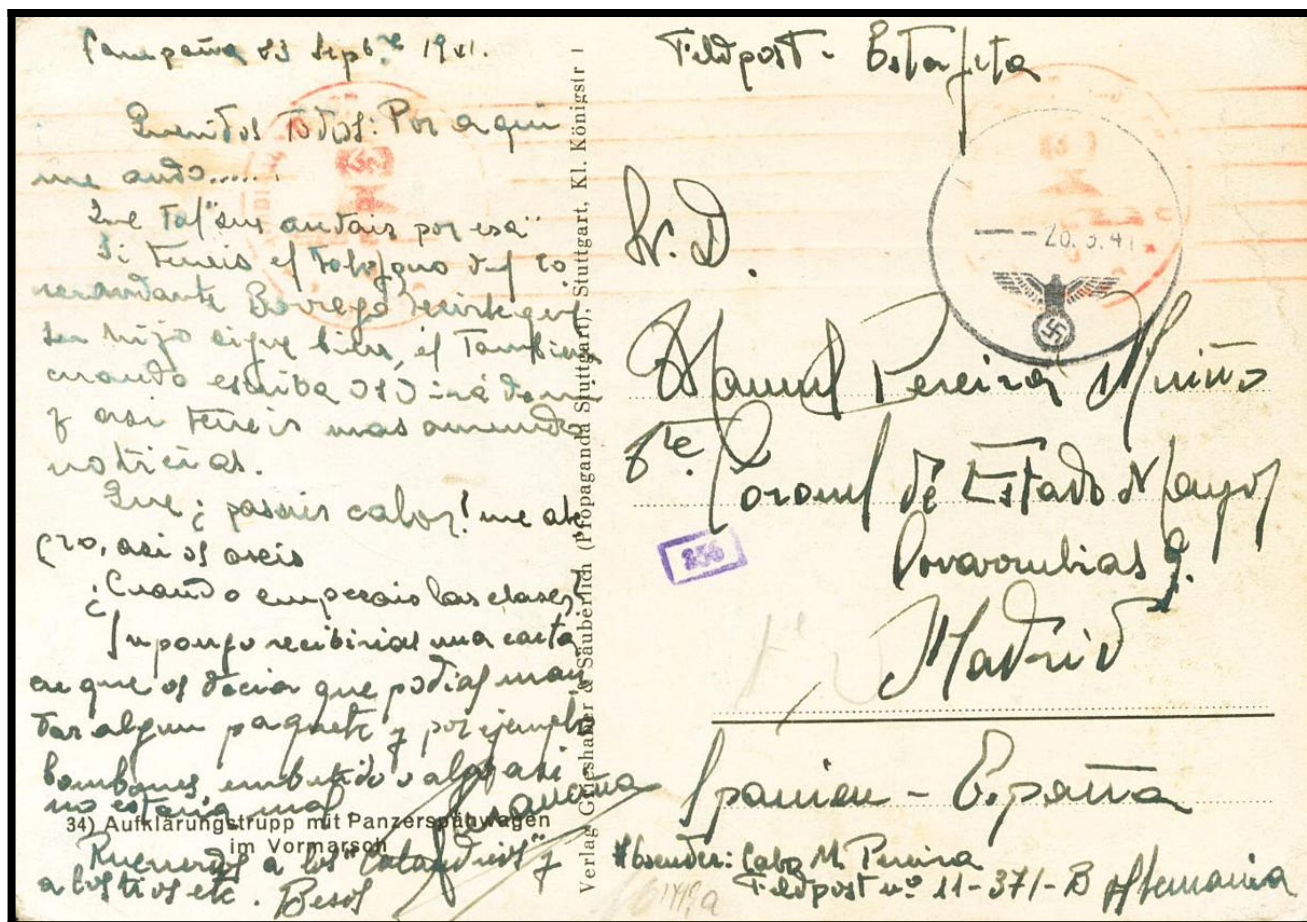 Campaña 23 Sepbre 1941.
Queridos todos: Por aqui
me ando.....
Que tal "sus andais por esa"
Si teneis el telefono del co
mandante Borrego decirle que
su hijo sigue bien, el tambien
cuando escriba os
y asi teneis mas amenudo
noticias.
Que ¡ pasais calor! me ale
gro, asi os
¿Cuando empezais las clases?
Supongo recibirias una carta
en que os decia que podias man
dar algun paquete y por ejemplo
bombones, embutido o algo asi
no estaria mal
34) Aufklärungstrupp mit Panzerspähwagen
im Vormarsch
Recuerdos a los " " y
a los tios etc. Besos
Verlag Grieshaber & Säuberlich (Propaganda Stuttgart), Stuttgart, Kl. Königstr 1
Feldpost - Estafeta
20.9.41
Sr. D.
Manuel Pereira Muiño
Tte. Coronel de Estado Mayor
Covarrubias 9.
Madrid
256
Spanien - España
Absender: Cabo M. Pereira
Feldpost nº 11-371-B Alemania